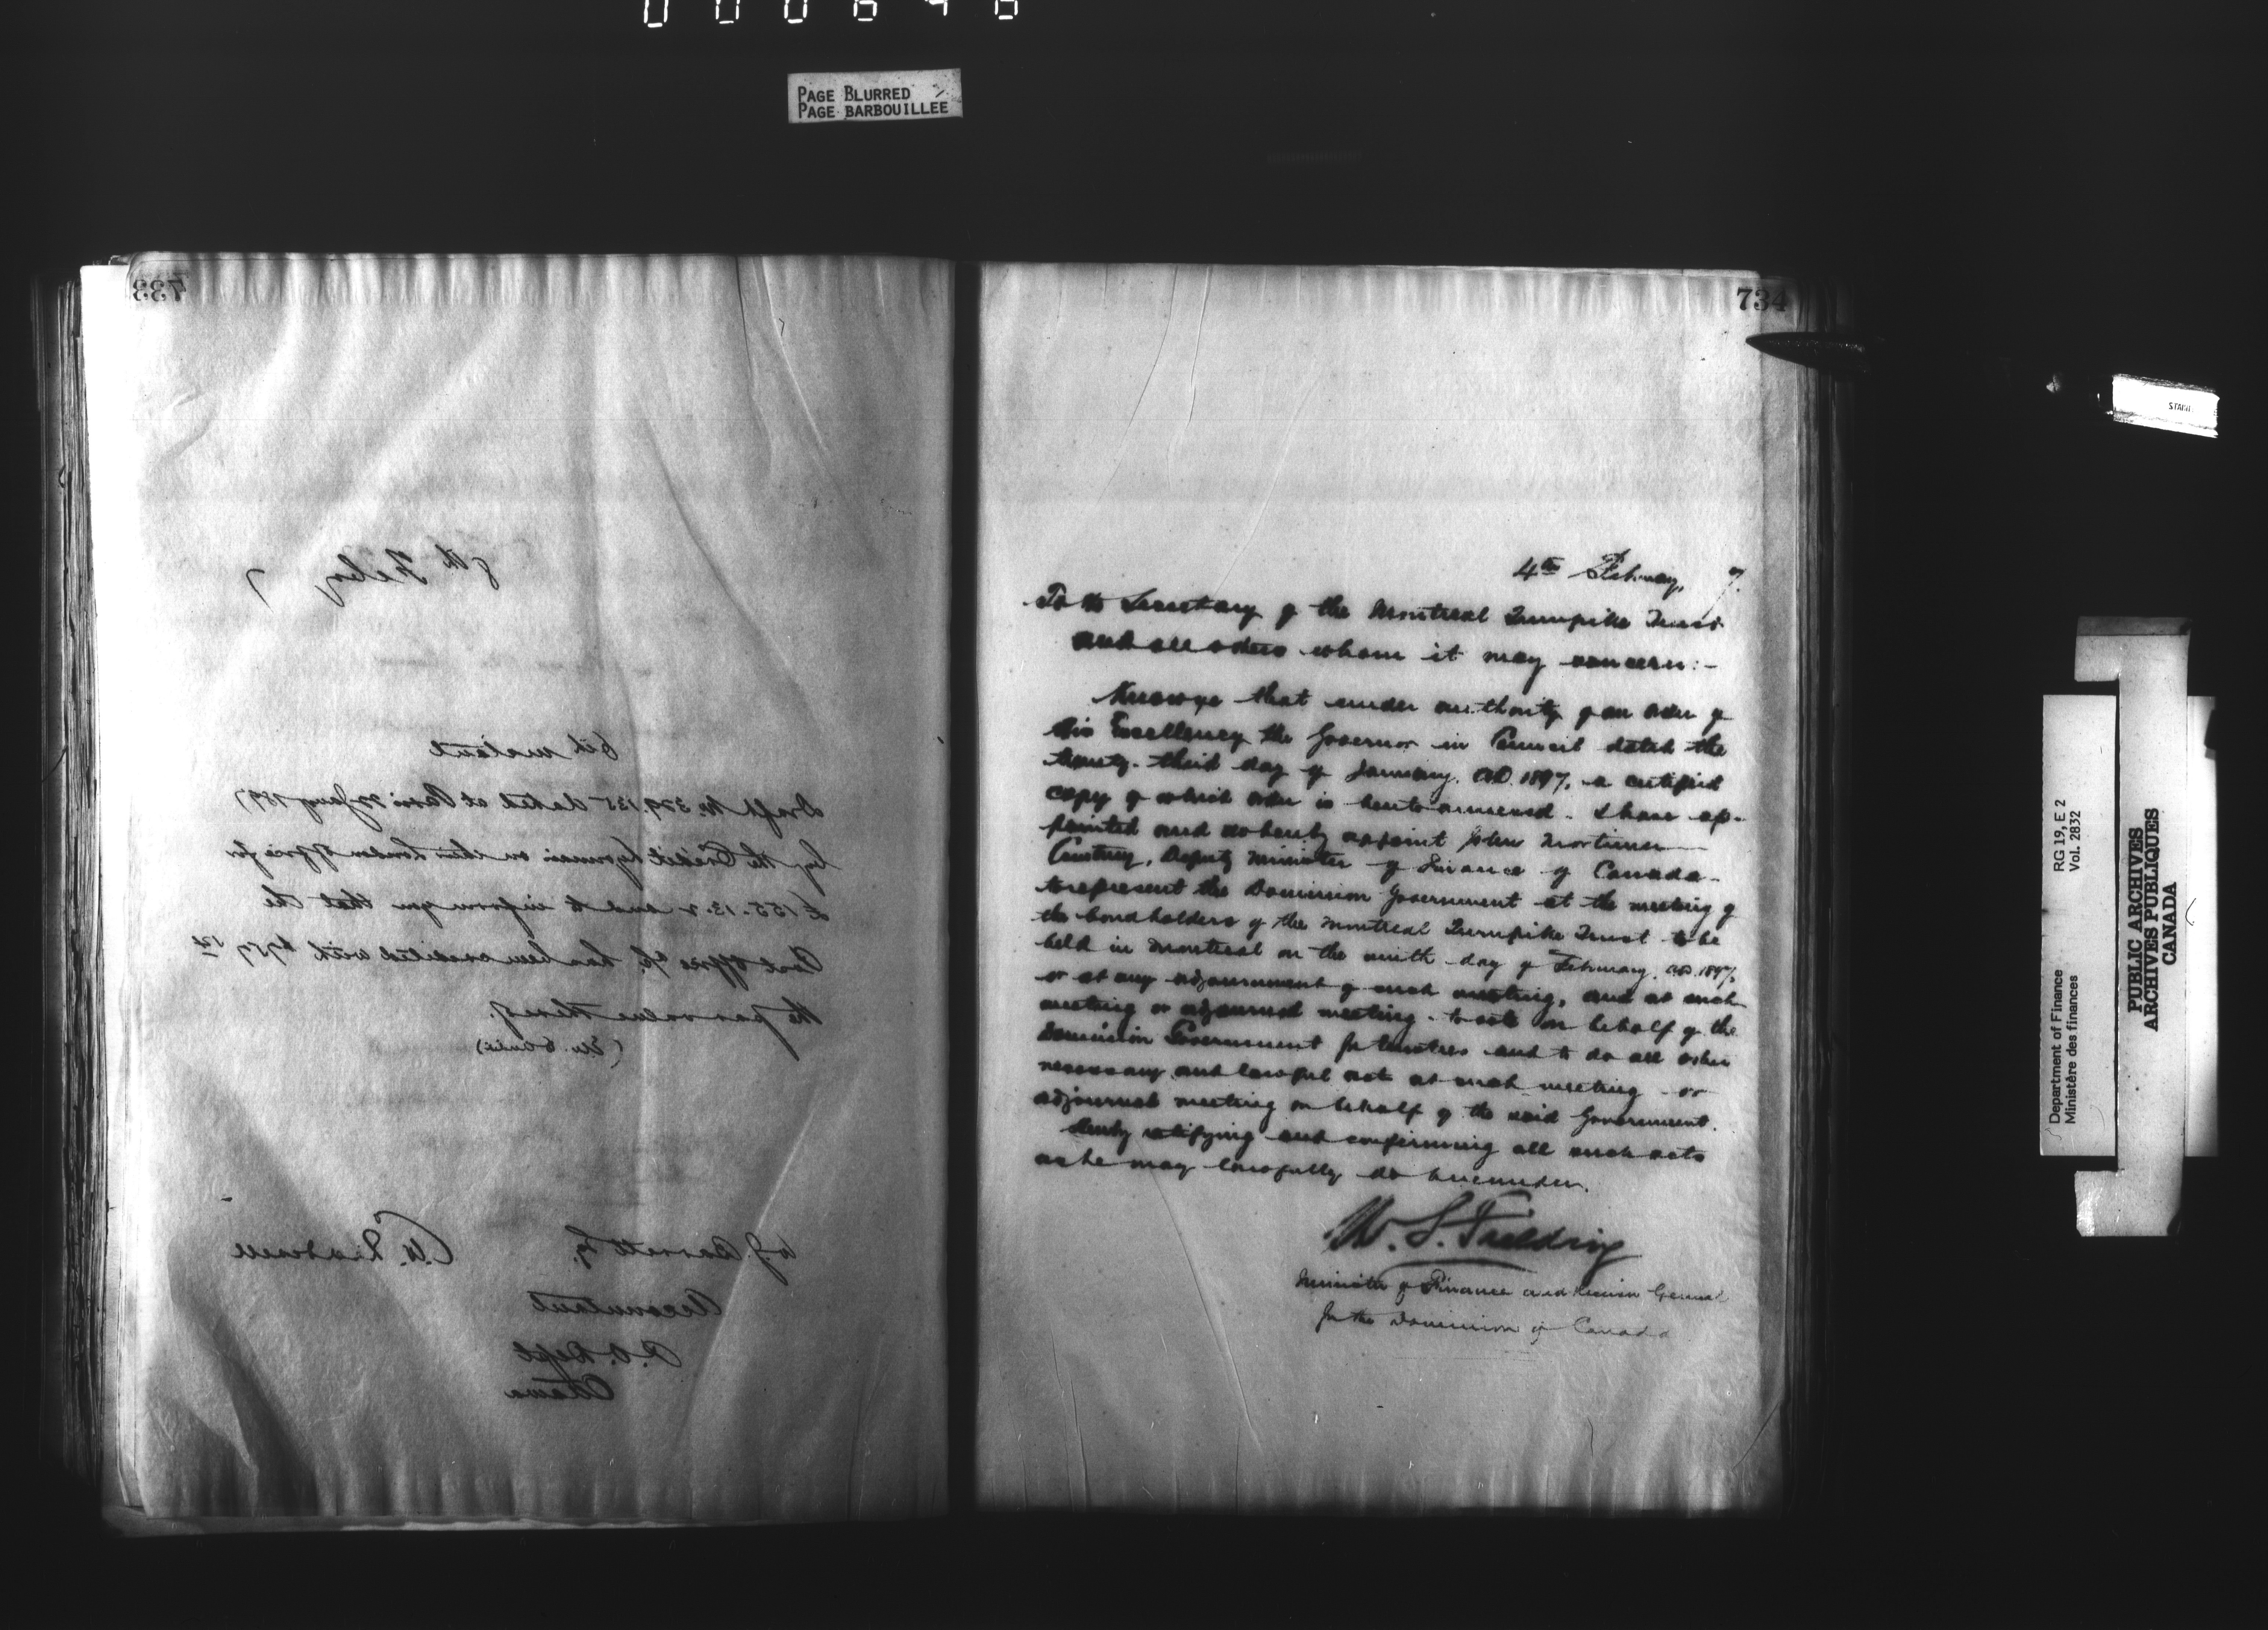 PAGE BLURRED
PAGE BARBOUILLEE
733
8th Feby 7
6th instant
Draft No. 379,135 dated at Paris 22 Jany 1897
by the Credit Lyonnais on their London office for
£155.13.2 and to inform you that the
Post Office a/c. has been credited with
the par value thereof.
W J Barrett Esq.
Accountant
P.O. Dept
Ottawa
734
4th February, 7.
To the Secretary of the Montreal Turnpike Trust
and all others whom it may concern:-
Know ye that under authority of an order of
His Excellency the Governor in Council dated the
twenty-third day of January, A.D. 1897, a certified
copy of which order is hereto annexed. I have ap-
pointed and do hereby appoint John Mortimer
Courtney, Deputy Minister of Finance of Canada-
to represent the Dominion Government at the meeting of
the bondholders of the Montreal Turnpike Trust to be
held in Montreal on the ninth day of February, A.D. 1897,
or at any adjournment of such meeting, and at such
meeting or adjourned meeting to vote on behalf of the
Dominion Government for trustees and to do all other
necessary and lawful acts at such meeting or
adjourned meeting on behalf of the said Government.
hereby ratifying and confirming all such acts
as he may lawfully do hereunder.
W. S. Fielding
Minister of Finance and Receiver General
for the Dominion of Canada
Department of Finance
Ministère des finances
RG 19, E 2
Vol. 2832
PUBLIC ARCHIVES
ARCHIVES PUBLIQUES
CANADA